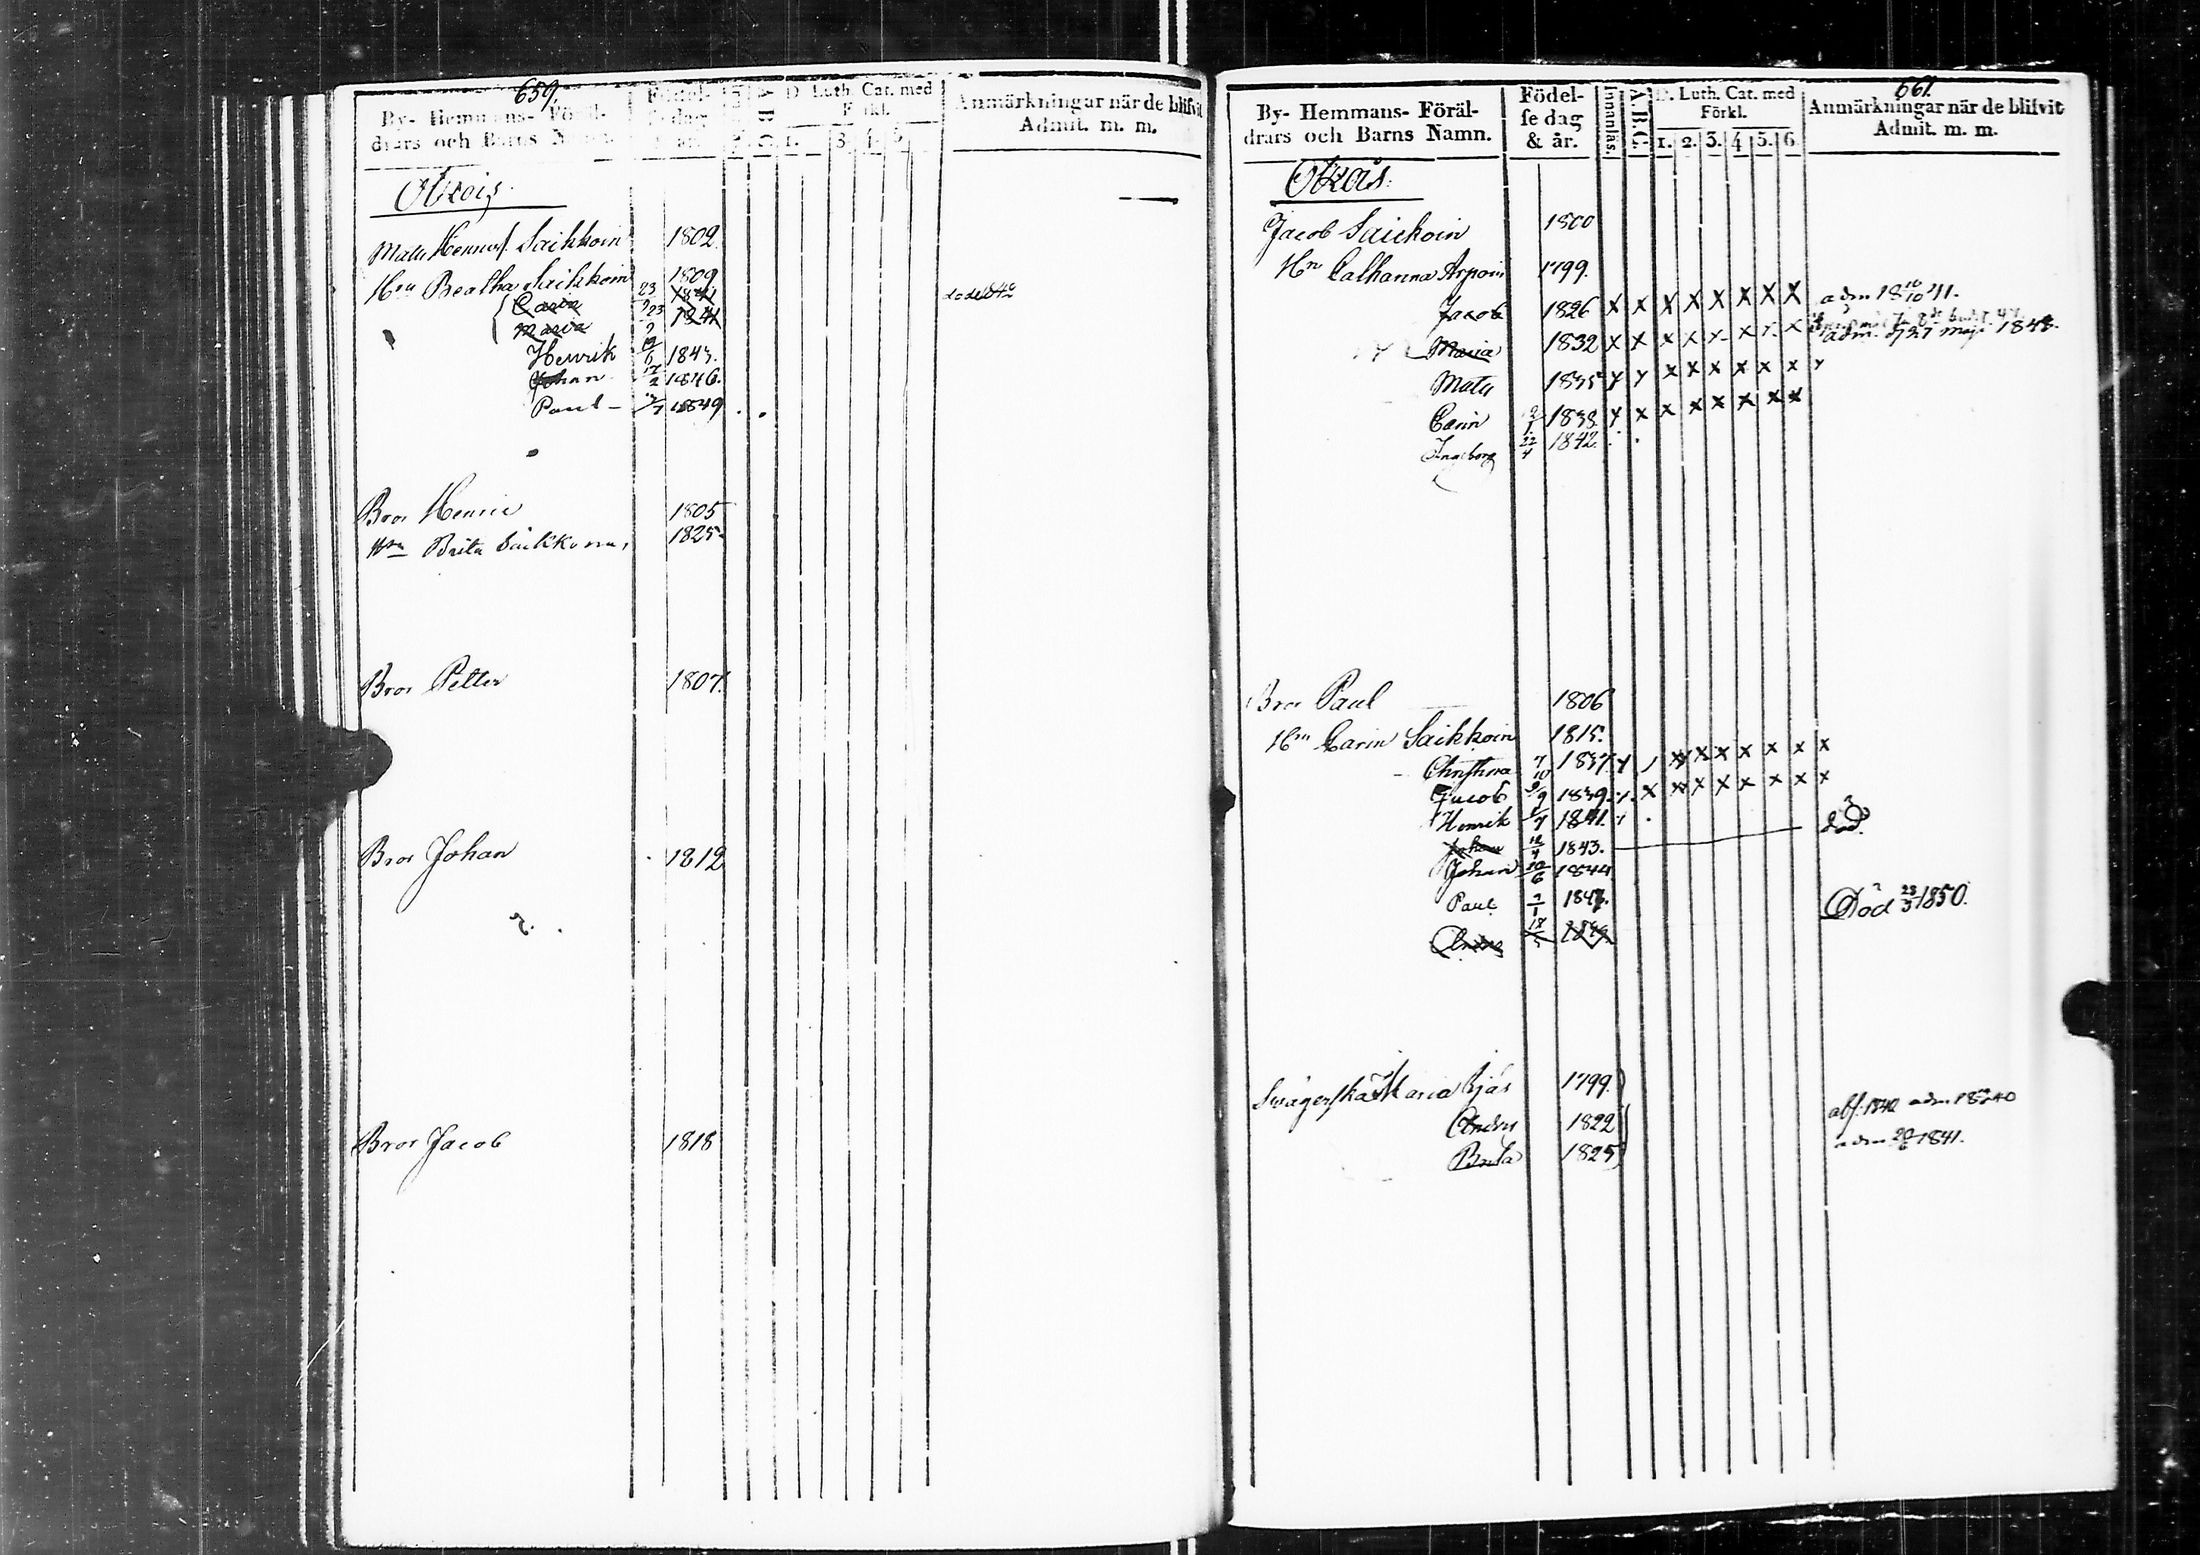 659.
By- Hemmans- Föräl-
drars och Barns Namn.
Födel-
se dag
& år.
A.B.C.
D. Luth. Cat. med
Förkl.
1. 3. 4. 5.
Anmärkningar när de blifvit
Admit. m. m.
Matts Saikkoin 1802
Hru Beatha Saikkoin 1809
Carin 23/9 1841
Maria 23/9 1841
Henrik 1843.
Johan 17/2 1846.
Paul 1849
Bror Henric 1805
Hru Brita 1825
Bror Petter 1807.
Bror Johan 1812
Bror Jacob 1818
661.
By- Hemmans- Föräl-
drars och Barns Namn.
Födel-
se dag
& år.
Innanläs.
A.B.C.
D. Luth. Cat. med
Förkl.
1. 2. 3. 4 5. 6
Anmärkningar när de blifvit
Admit. m. m.
Jacob Saickoin 1800
Hn Catharina Arpoin 1799.
Jacob 1826 x x x x x x x x adm 18 10/10 41.
Maria 1832 x x x x x x x x adm. d 27 maji 1848.
Matts 1835
Carin 2/1 1838
Ingeborg 22/4 1842.
Bror Paul 1806
Hru Carin Saikkoin 1815.
Christina 7/10 1837
Jacob 9/9 1839.
Henrik 1841.
Johan 12/4 1843. död.
Johan 20/6 1844
Paul 1847.
Död 23/3 1850.
Swägerskan Maria 1799.
Anders 1822 1840
Brita 1825 adm 1841.